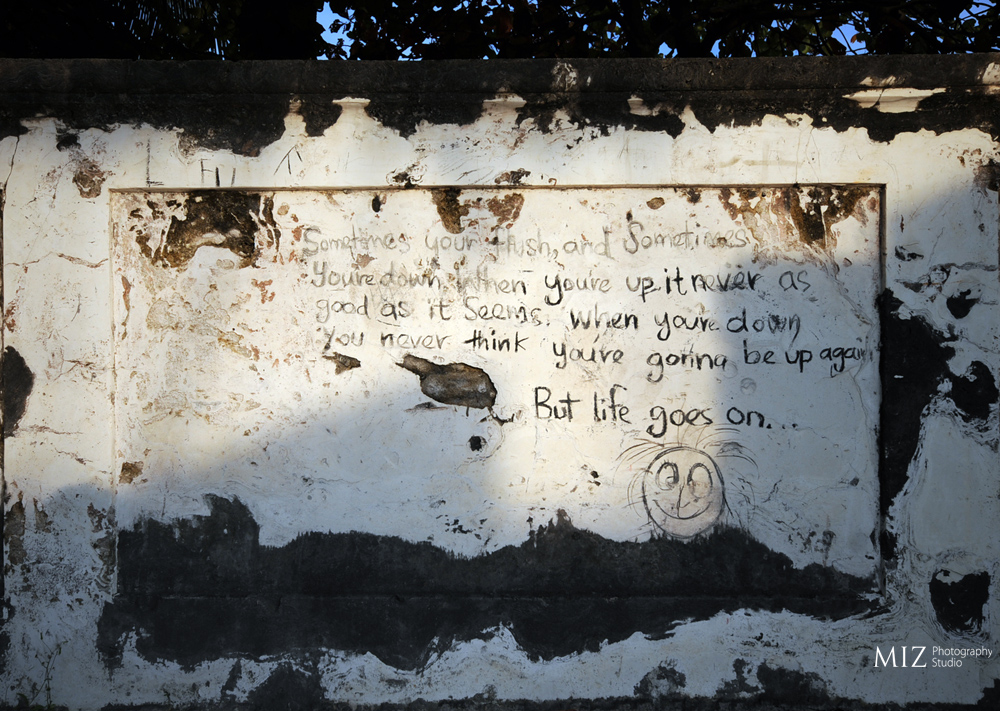 Sometimes your flush, and Sometimes
You're down. When you're up, it never as
good as it Seems. When you're down
You never think you're gonna be up again
But life goes on...
MIZ Photography
Studio